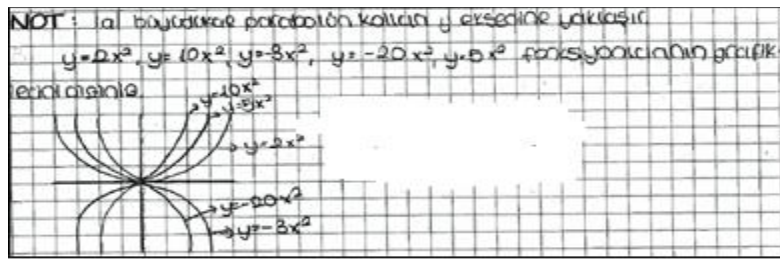 NOT: |a| büyüdükçe parabolün kolları y eksenine yaklaşır.
y=2x², y=10x², y=-3x², y=-20x², y=5x² fonksiyonlarının grafik-
lerini
y=10x²
y=5x²
y=2x²
y=-20x²
y=-3x²